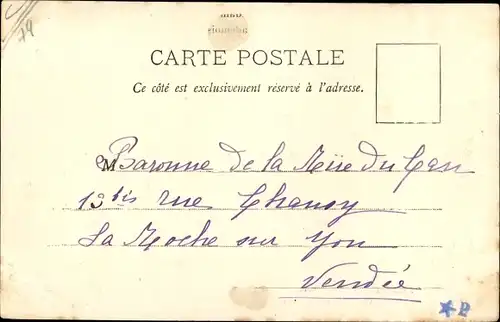 79
CARTE POSTALE
Ce côté est exclusivement réservé à l'adresse.
M Baronne de la
13 bis rue Chanzy
La Roche sur Yon
Vendée